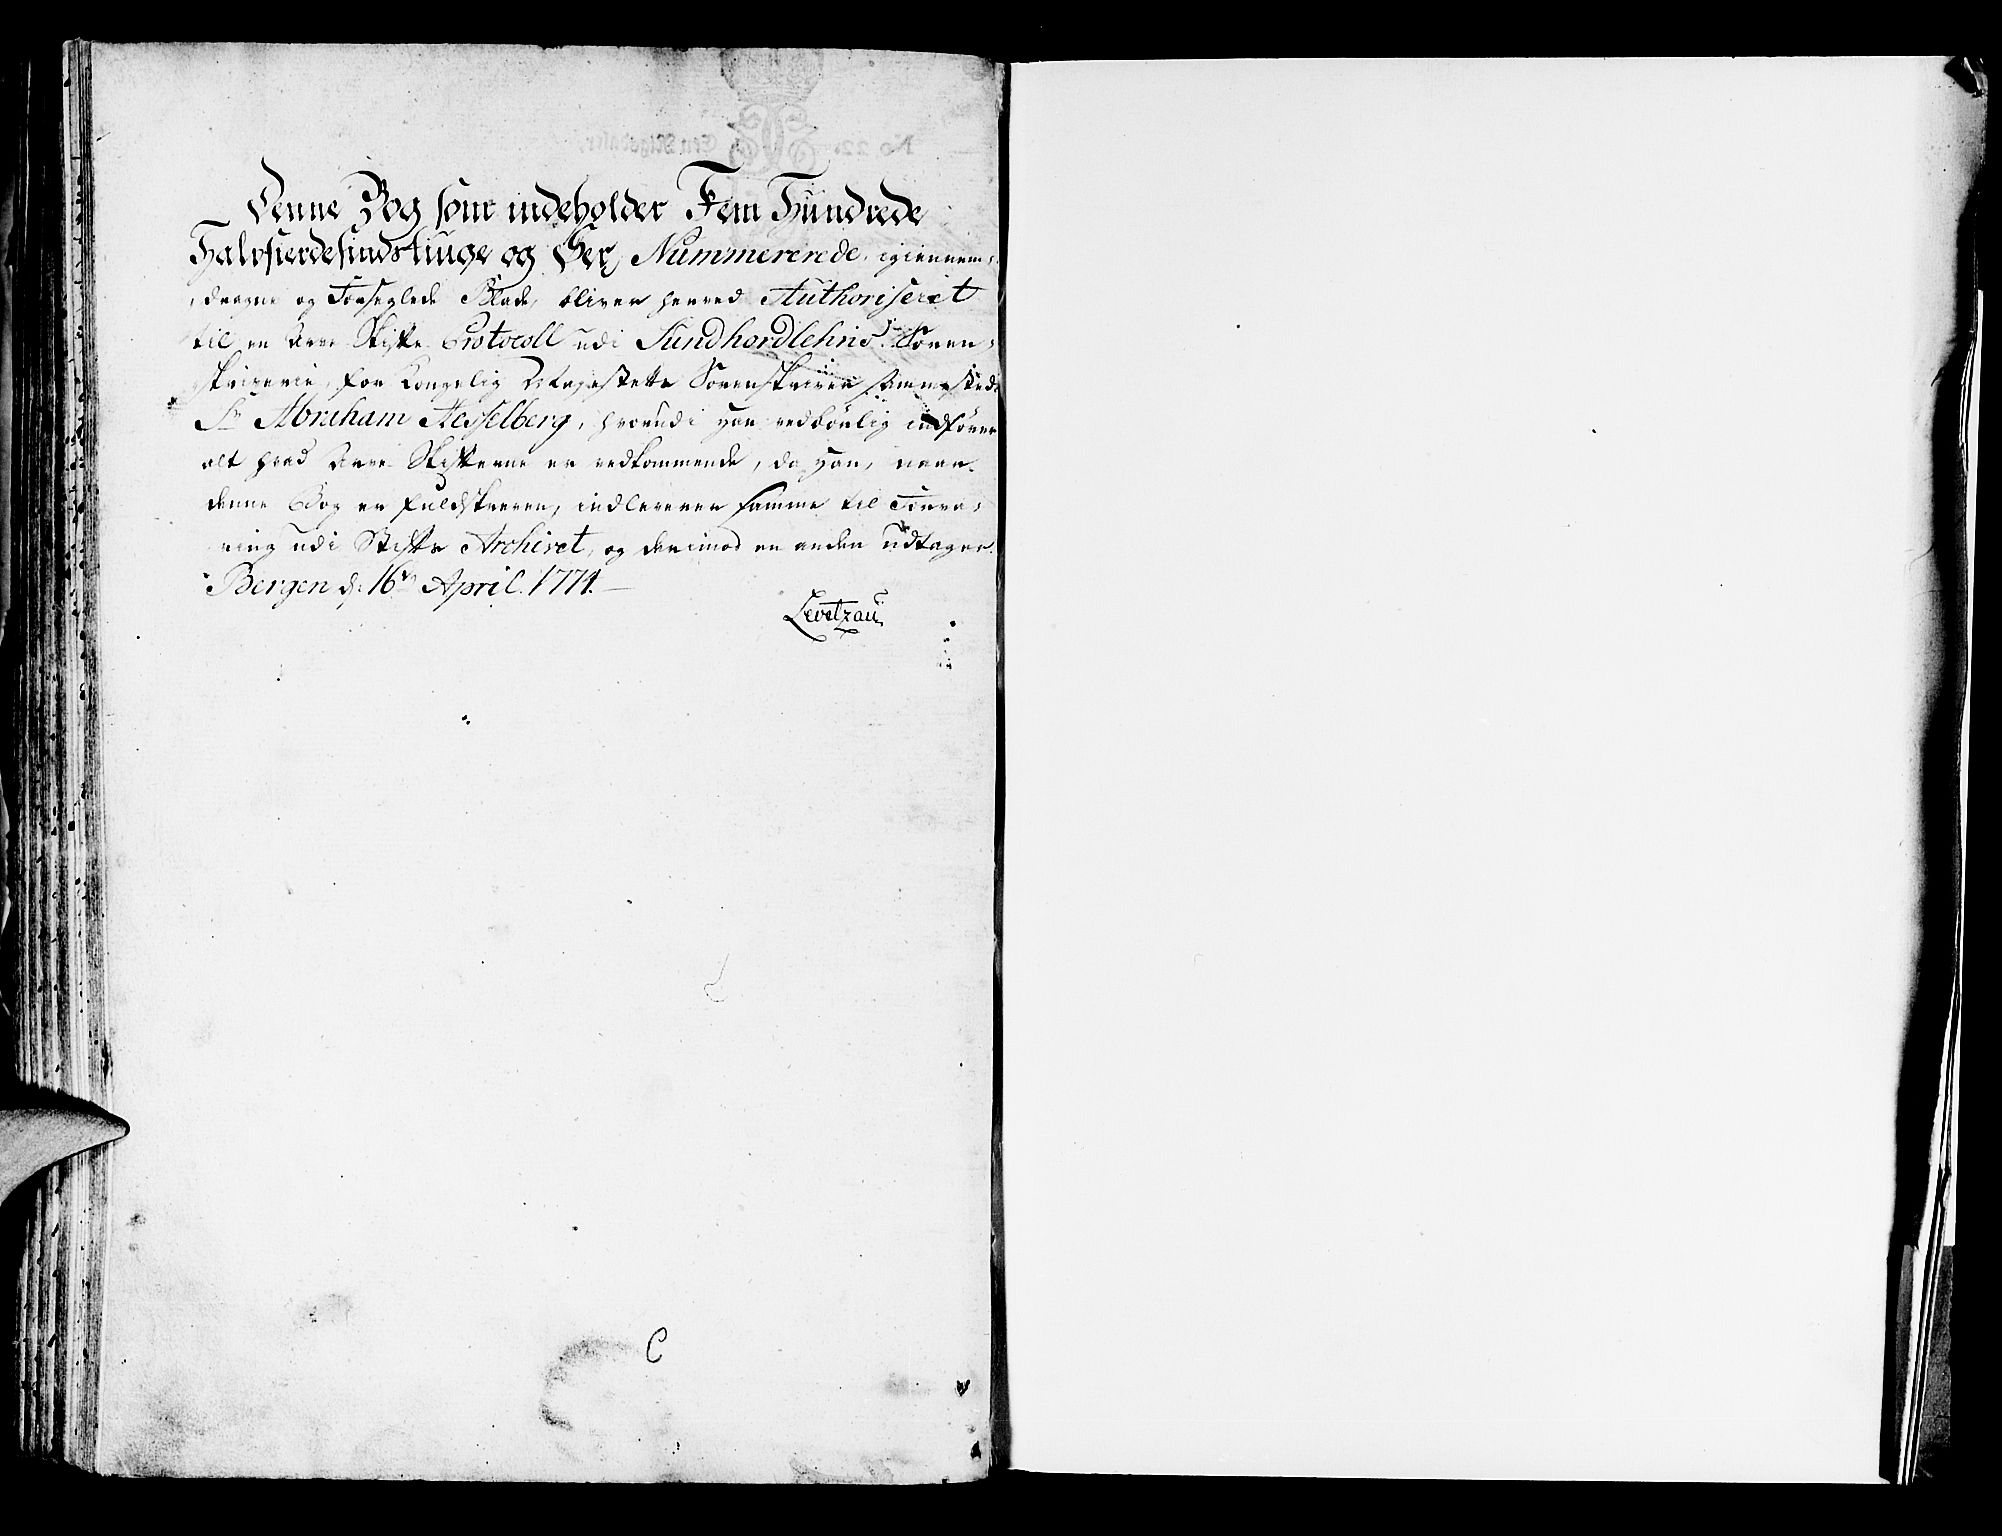 Denne Bog som indeholder Fem Hundrede
Halvfierdesindstiuge og Sex Nummererede, igiennem-
dragne og Forseglede Blade, bliver herved Authoriseret
til en Arve Skifte Protocoll udi Sundhordlehns Soren-
skriverie, for Kongelig Sorenskriver sammesteds
Sr. Abraham Hesselberg, hvorudi han vedbørlig indfører
alt hvad Arve Skifterne er vedkommende, da han, naar
denne Bog er fuldskreven, indleverer samme til Forva-
ring udi Skifte Archivet, og derimod en anden udtager.
Bergen d. 16de April 1774.
Levetzau
C